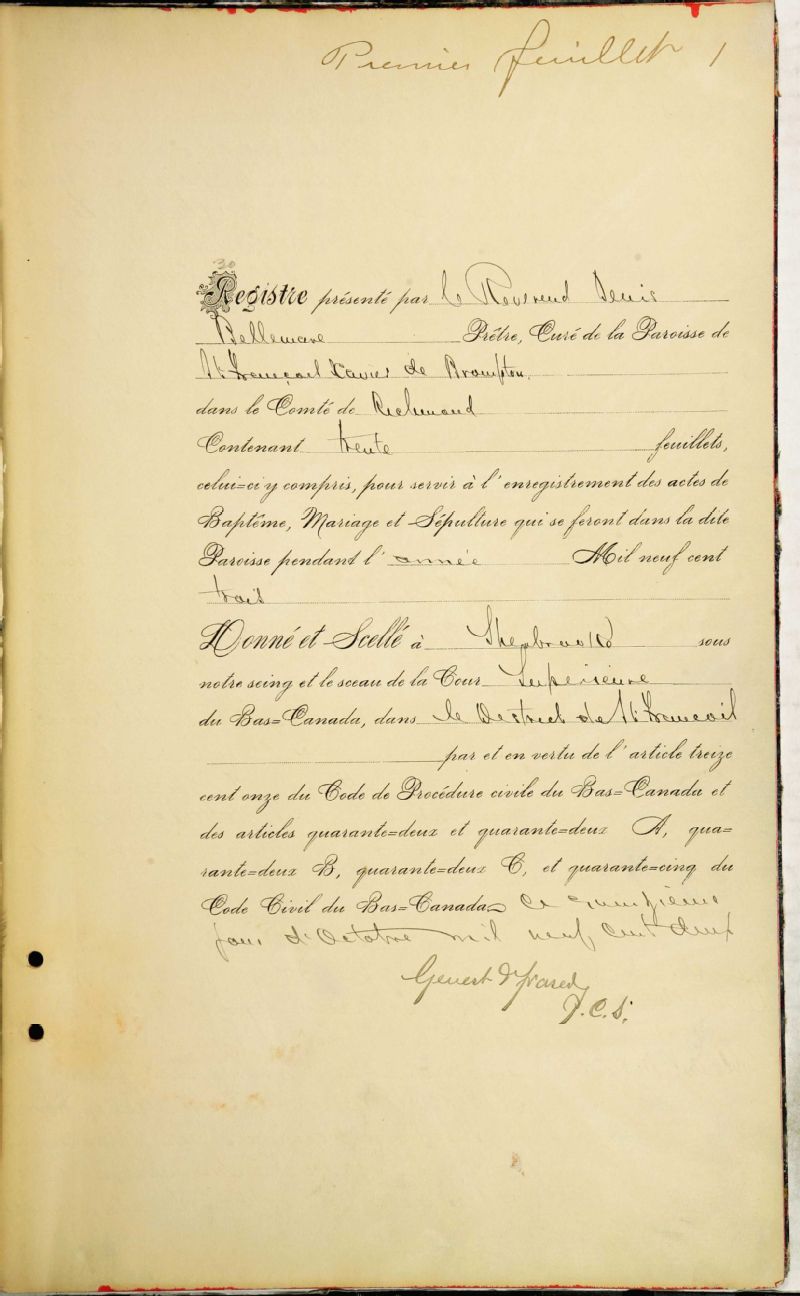 Premier feuillet 1
30
Registre présenté par le Révérend Denis
Bellemare Prêtre, Curé de la Paroisse de
St François Xavier de Brompton
dans le Comté de Richmond
Contenant trente feuillets,
celui=ci y compris, pour servir à l'enregistrement des actes de
Baptême, Mariage et Sépulture qui se feront dans la dite
Paroisse pendant l'année Mil neuf cent
trois
Donné et Scellé à Sherbrooke sous
notre seing et le sceau de la Cour Supérieure
du Bas=Canada, dans le District de St François
par et en vertu de l'article treize
cent onze du Code de Procédure civile du Bas=Canada et
des articles quarante=deux et quarante=deux A, qua=
rante=deux B, quarante=deux C, et quarante=cinq du
Code Civil du Bas=Canada ce quinzième
jour d'Octobre mil neuf cent deux